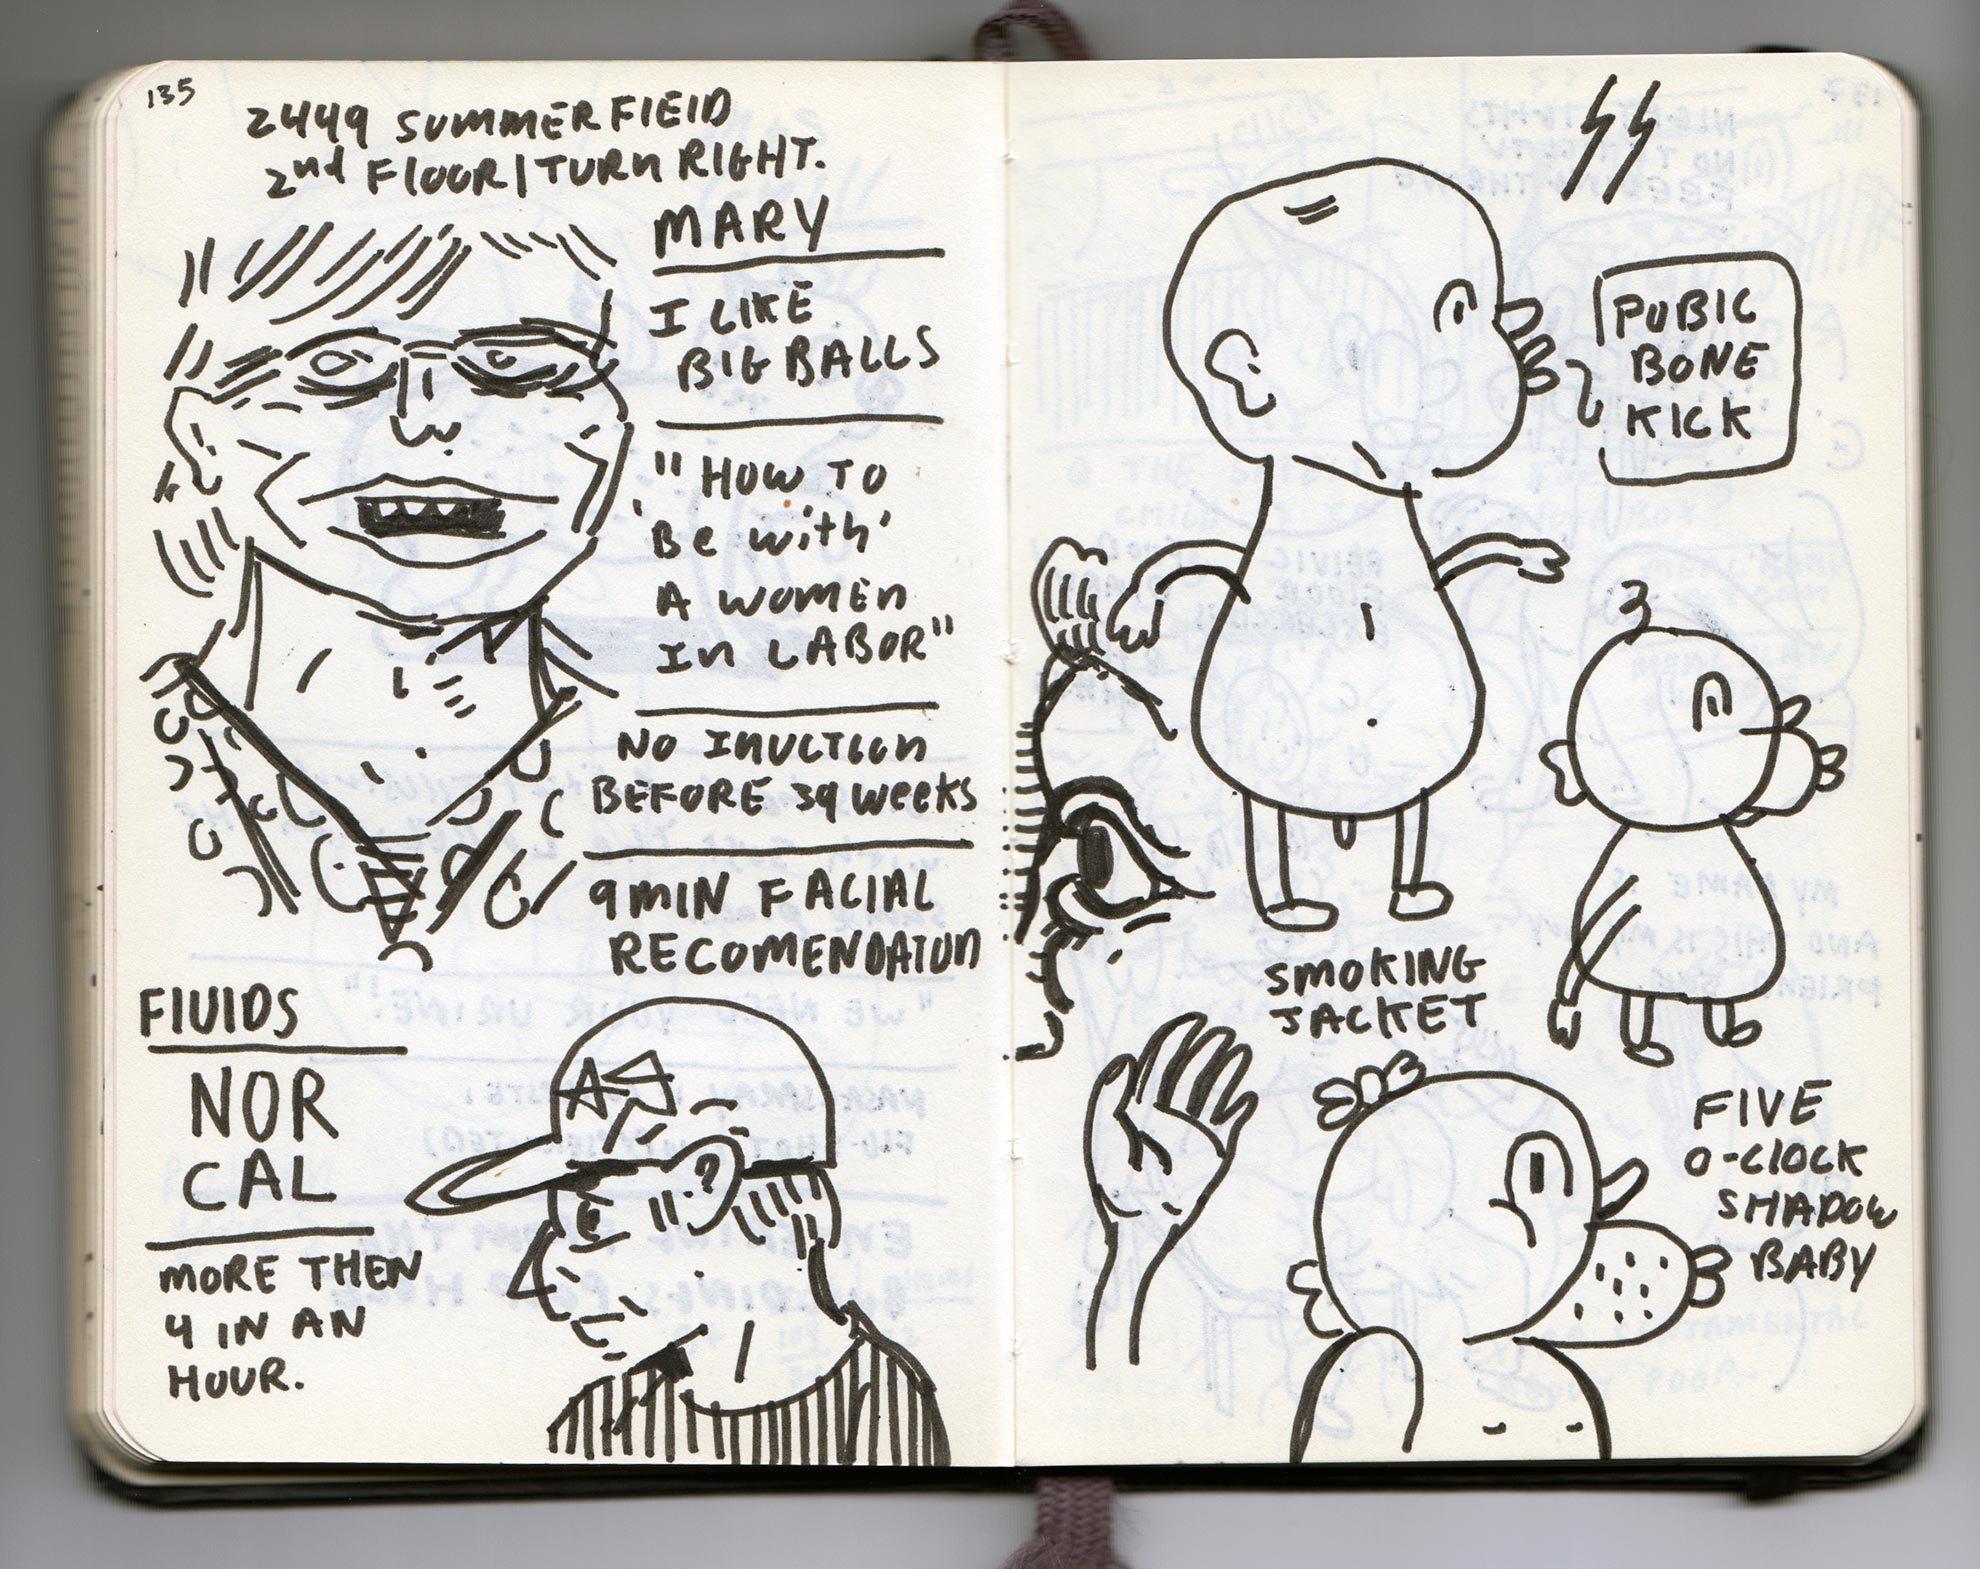 135
2449 SUMMERFIELD
2nd FLOOR/TURN RIGHT.
MARY
I LIKE
BIG BALLS
"HOW TO
'Be with'
A WOMEN
In LABOR"
NO INUCTION
BEFORE 39 WEEKS
9 MIN FACIAL
RECOMENDATION
FLUIDS
NOR
CAL
MORE THEN
4 IN AN
HOUR.
PUBIC
BONE
KICK
SMOKING
JACKET
FIVE
O-CLOCK
SHADOW
BABY